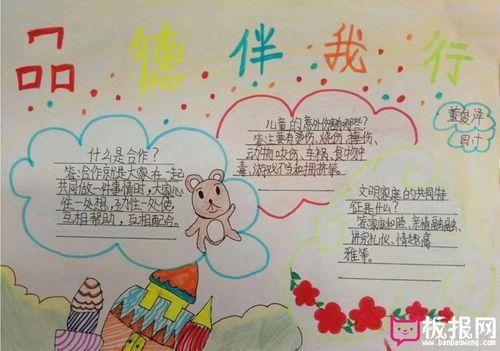 品德伴我行
董俊泽
四计
什么是合作？
答:合作就是大家在一起
共同做一件事情时,大家心
往一处想,劲往一处使
互相帮助,互相配合。
儿童的意外伤害有哪些?
答:主要有烫伤、烧伤、摔伤、
动物咬伤、车祸、食物中
毒、游戏不当和拥挤等。
文明家庭的共同特
征是什么?
答:家庭和睦、亲情融融、
讲究礼仪、情趣高
雅等。
板报网
www.banbaowang.com